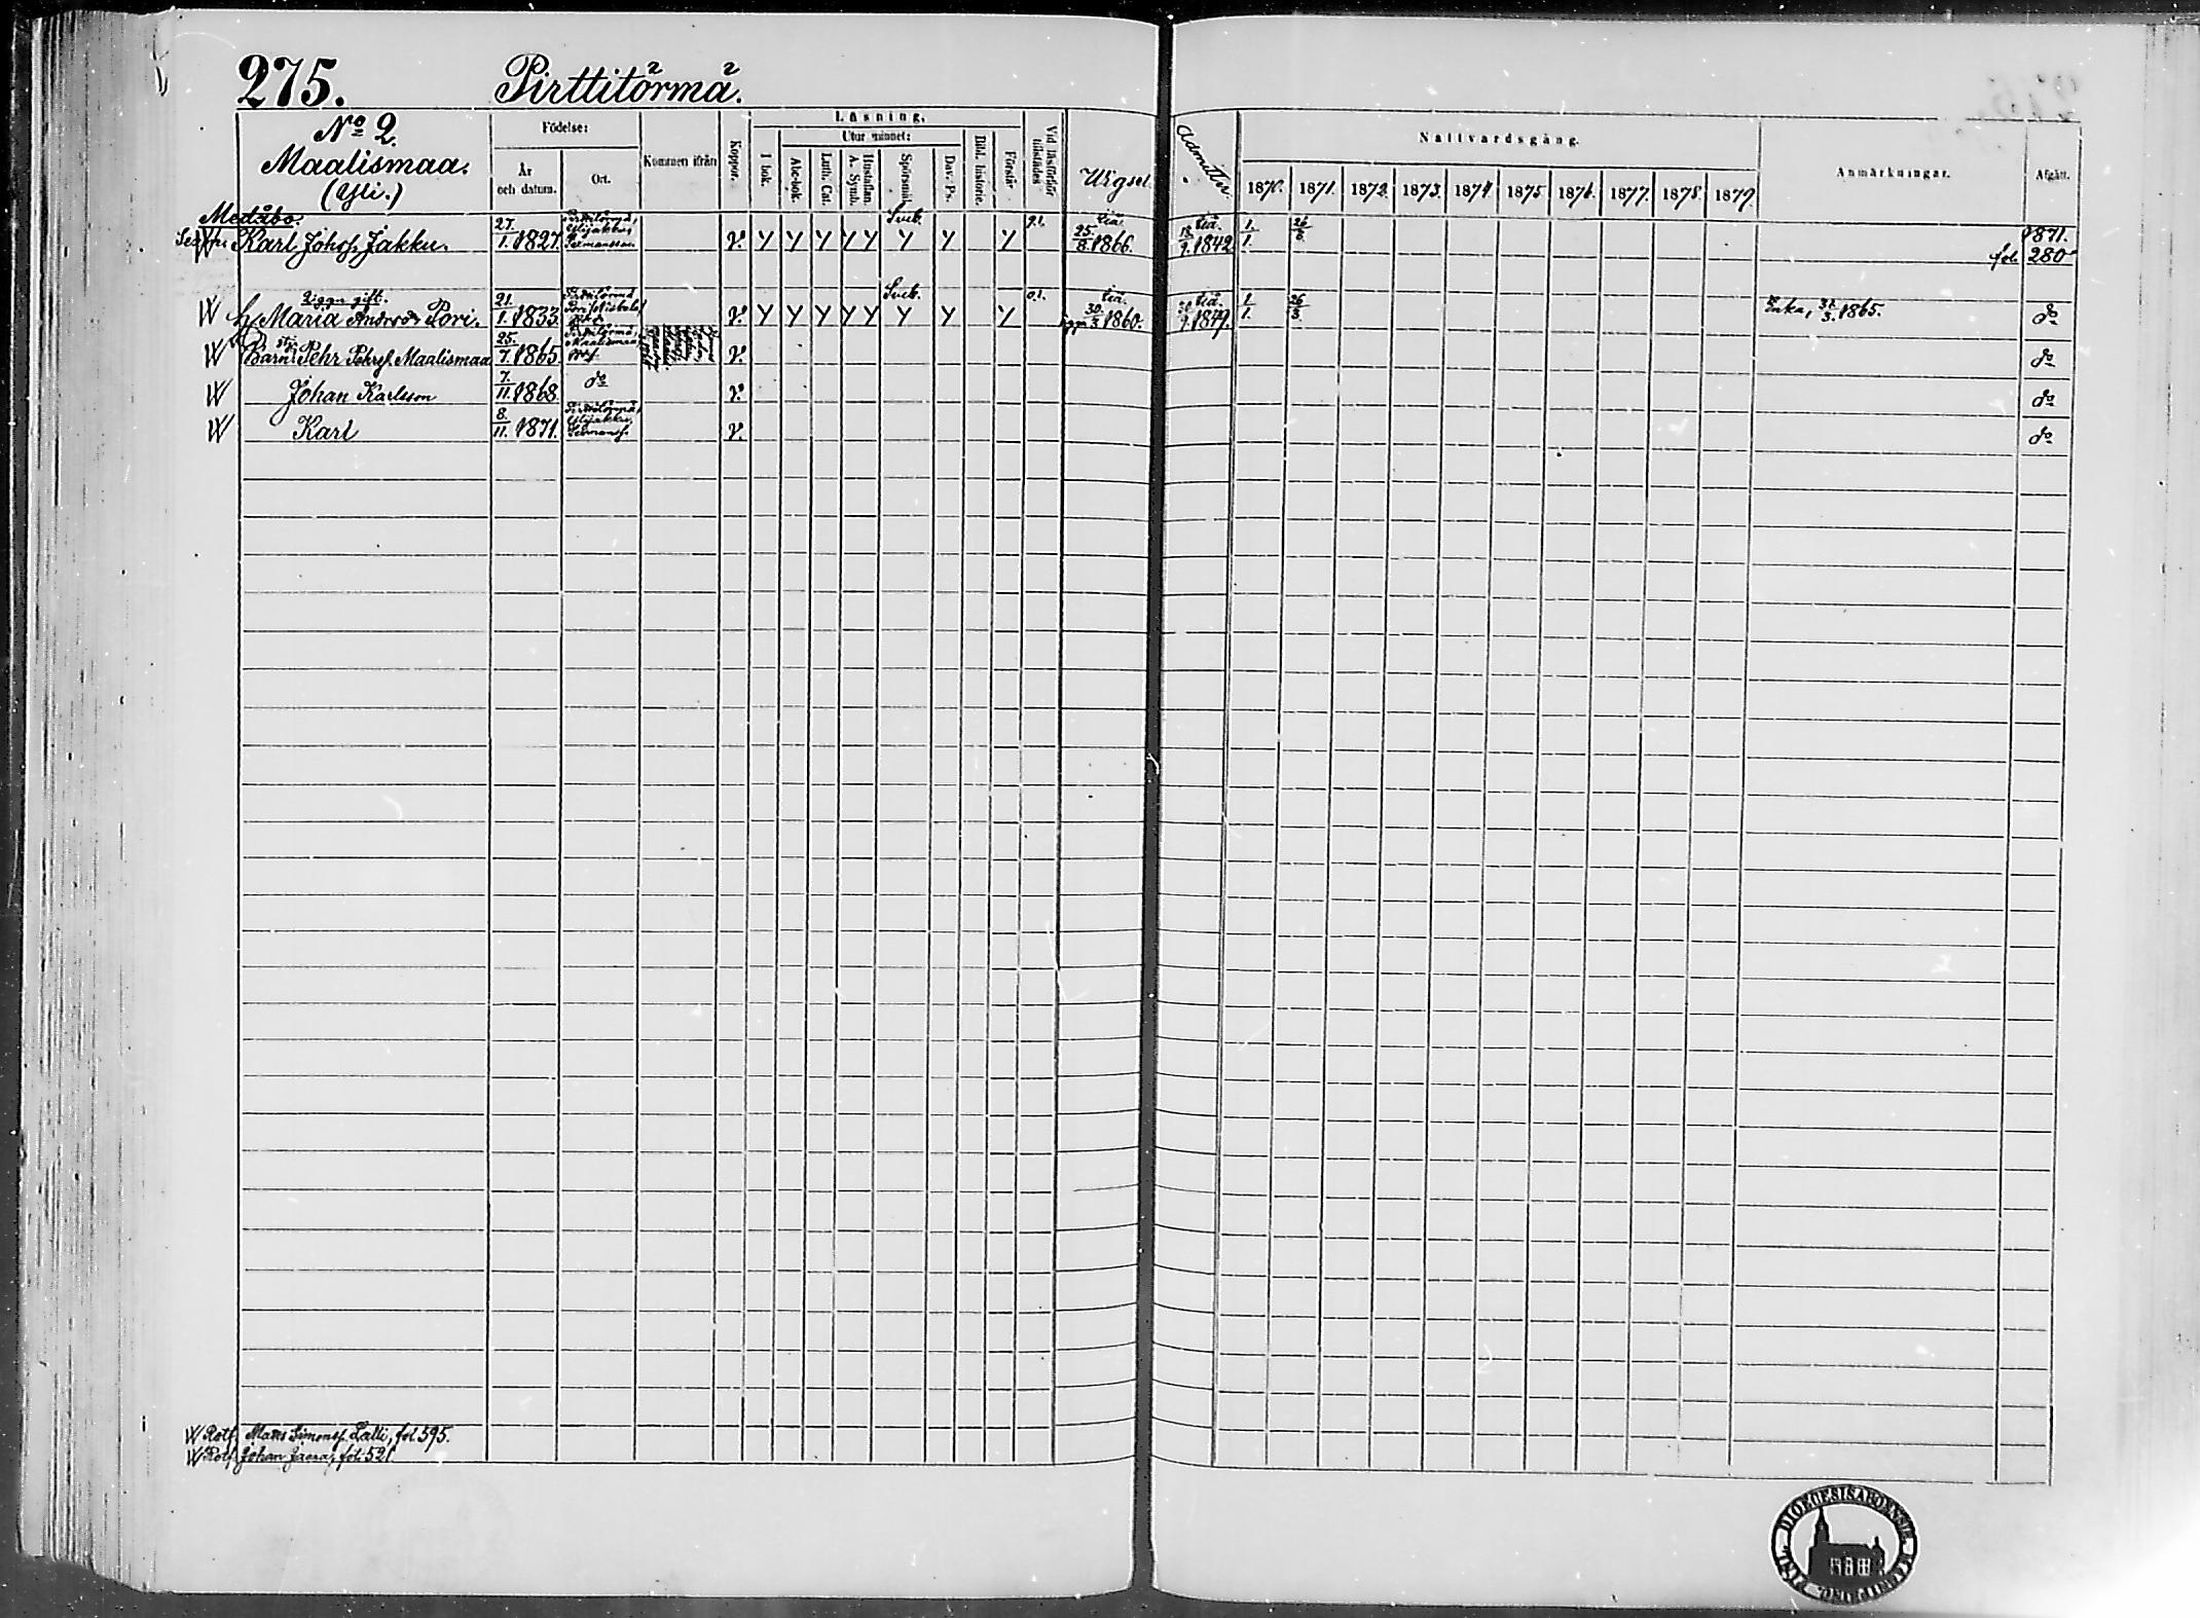 275. Pirttitörmä.
No 2. Maalismaa. (Yli.)
Födelse:
År och datum.
Ort.
Kommen ifrån
Koppor.
Läsning.
I bok.
Utur minnet:
Abc-bok.
Luth. Cat.
Hustaflan. A. Symb.
Spörsmål.
Dav. Ps.
Bibl. historie.
Förstår
Vid läsförhör tillstädes
Wigsel
Admitter.
Nattvardsgång.
1870. 1871. 1872. 1873. 1874. 1875 1876. 1877. 1878. 1879.
Anmärkningar.
Afgått.
Medåbo:
Karl Johofs. Jakku. 27. 1. 1827. Pirttitörmä, v. y y y y y Sveb. y y y 25. 8. 1866. 9. 1842 1. 1. 26 1871. fol. 280
2 ggr gift.
h. Maria Andersdr Pori. 21. 1. 1833. Pirttitörmä v. y y y y y Sveb. y y y 30. 3. 1860. 1. 1. 26 3. Enka, 31. 3. 1865. do
Barn: Pehr Pehrs. Maalismaa 25. 7. 1865. Pirttitörmä, Maalismaa v. do
Johan Karlsson 7. 11. 1868. do v. do
Karl 8. 11. 1871. Pirttitörmä, v. do
Rotf. Matts Simonsf. Lalli, fol. 595.
Rotf. Johan Jaara, fol. 521.
DIOECESIS ABOENSIS